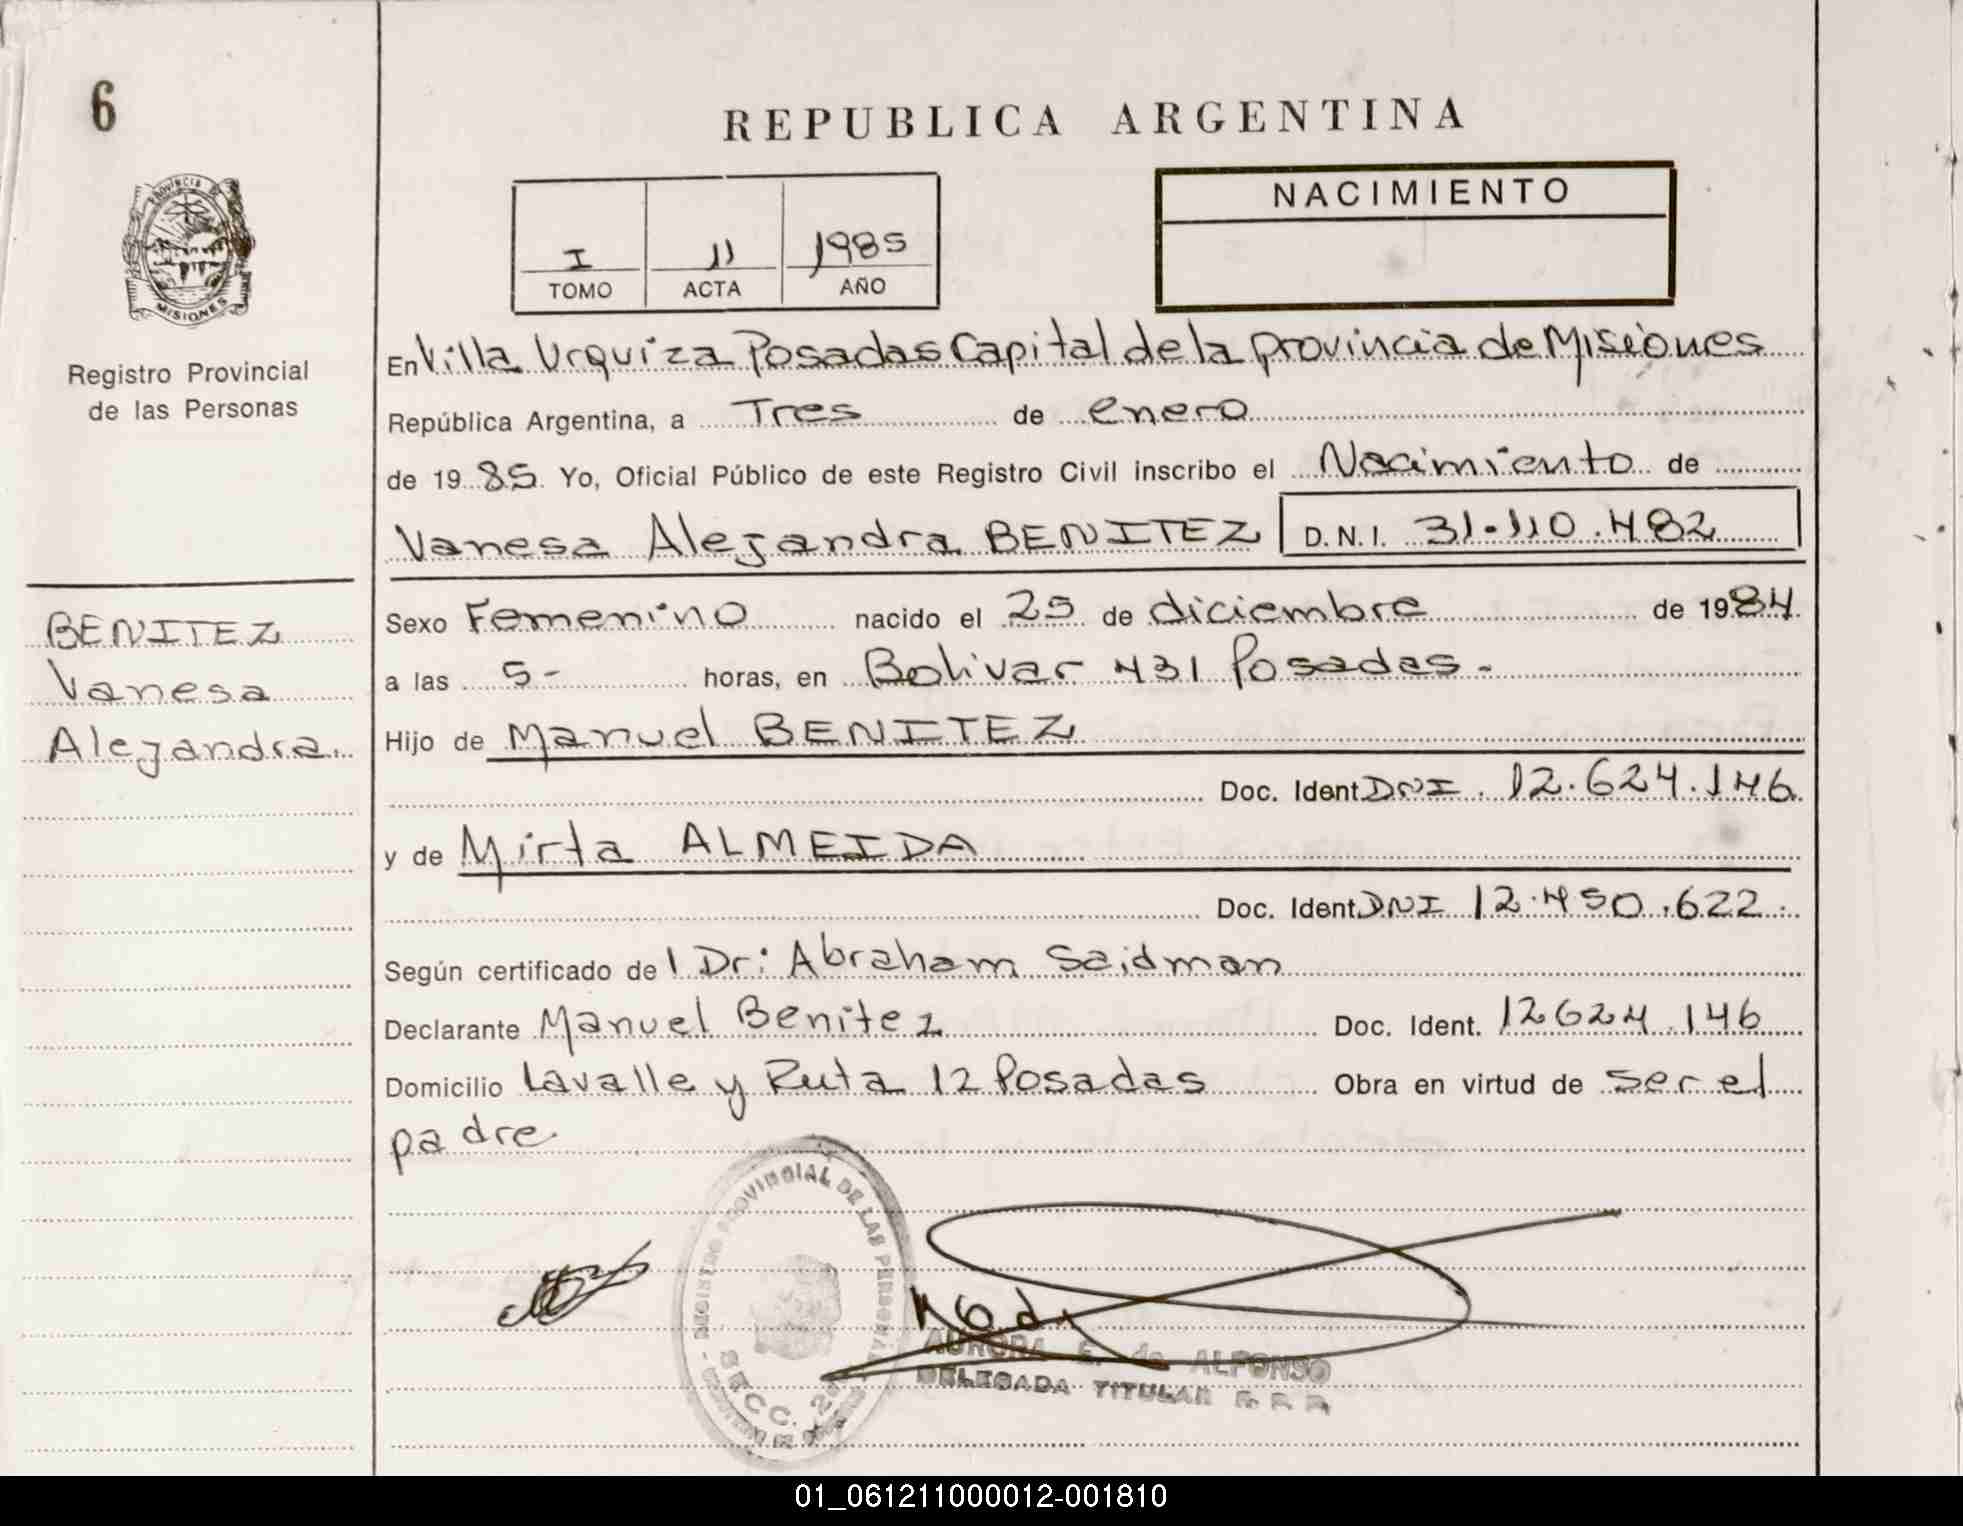 6
REPUBLICA ARGENTINA
PROVINCIA DE
MISIONES
Registro Provincial
de las Personas
I 11 1985
TOMO ACTA AÑO
NACIMIENTO
En Villa Urquiza Posadas Capital de la provincia de Misiones
República Argentina, a Tres de enero
de 1985 Yo, Oficial Público de este Registro Civil inscribo el Nacimiento de
Vanesa Alejandra BENITEZ D.N.I. 31.110.482
BENITEZ
Vanesa
Alejandra
Sexo Femenino nacido el 25 de diciembre de 1984
a las 5- horas, en Bolivar 431 Posadas.-
Hijo de Manuel BENITEZ
Doc. Ident DNI. 12.624.146
y de Mirta ALMEIDA
Doc. Ident. DNI 12.450.622.
Según certificado de l Dr: Abraham Saidman
Declarante Manuel Benitez Doc. Ident. 12624.146
Domicilio Lavalle y Ruta 12 Posadas Obra en virtud de ser el
padre.
REGISTRO PROVINCIAL DE LAS PERSONAS
SECC. 2a
AURORA E. de ALFONSO
DELEGADA TITULAR R. P. P.
01_061211000012-001810